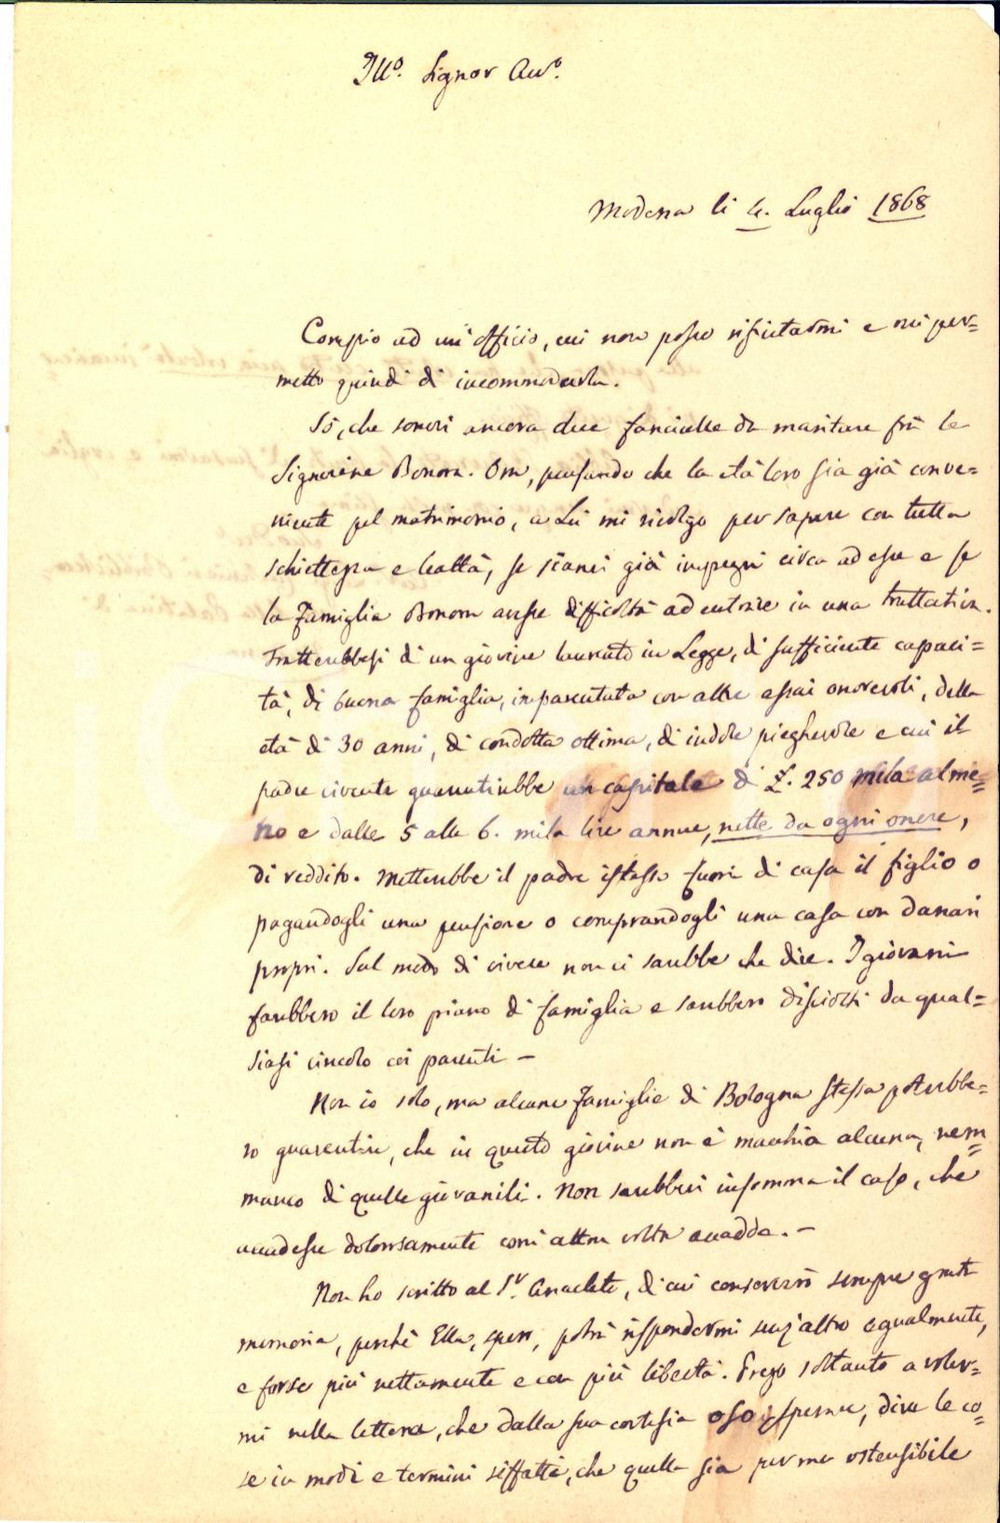 Illo. Signor Avvo.
Modena li 4. Luglio 1868
Compio ad un' officio, cui non posso rifiutarmi e mi per=
metto quindi di incommodarla.
Só, che sonovi ancora due fanciulle da maritare frà le
Signorine Bonora. Ora, pensando che la età loro sia già conve=
niente pel matrimonio, a Lei mi rivolgo per sapere con tutta
schiettezza e lealtà, se sianvi già impegni circa ad esse e se
la famiglia Bonora avesse difficoltà ad entrare in una trattativa.
Tratterebbesi di un giovine laureato in Legge, di sufficiente capaci=
tà, di buona famiglia, imparentata con altre assai onorevoli, della
età di 30 anni, di condotta ottima, di indole pieghevole e cui il
padre vivente guarentirebbe un capitale di £. 250 mila alme=
no e dalle 5 alle 6. mila lire annue, nette da ogni onere,
di reddito. Metterebbe il padre istesso fuori di casa il figlio o
pagandogli una pensione o comprandogli una casa con danari
propri. Sul modo di vivere non ci sarebbe che dire. I giovani
farebbero il loro piano di famiglia e sarebbero disciolti da qual=
siasi vincolo coi parenti –
Non io solo, ma alcune famiglie di Bologna stessa potrebbe=
ro guarentire, che in questo giovine non è macchia alcuna, nem=
manco di quelle giovanili. Non sarebbevi insomma il caso, che
accadesse dolorosamente com' altra volta accadde. –
Non ho scritto al Sr. Anacleto, di cui conserverò sempre grata
memoria, perchè Ella, spero, potrà rispondermi senz' altro egualmente,
e forse più nettamente e con più libertà. Prego soltanto a voler=
mi nella lettera, che dalla sua cortesia oso sperare, dire le co=
se in modi e termini siffatti, che quella sia per me ostensibile